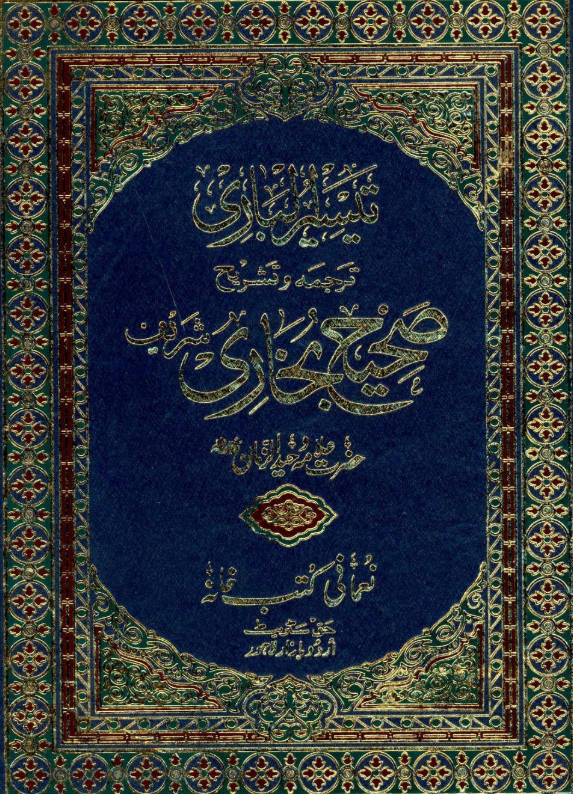 تیسیر الباری
ترجمہ و تشریح
صحیح بخاری شریف
حضرت علامہ وحید الزمان
نعمانی کتب خانہ
حق سٹریٹ
اردو بازار لاہور